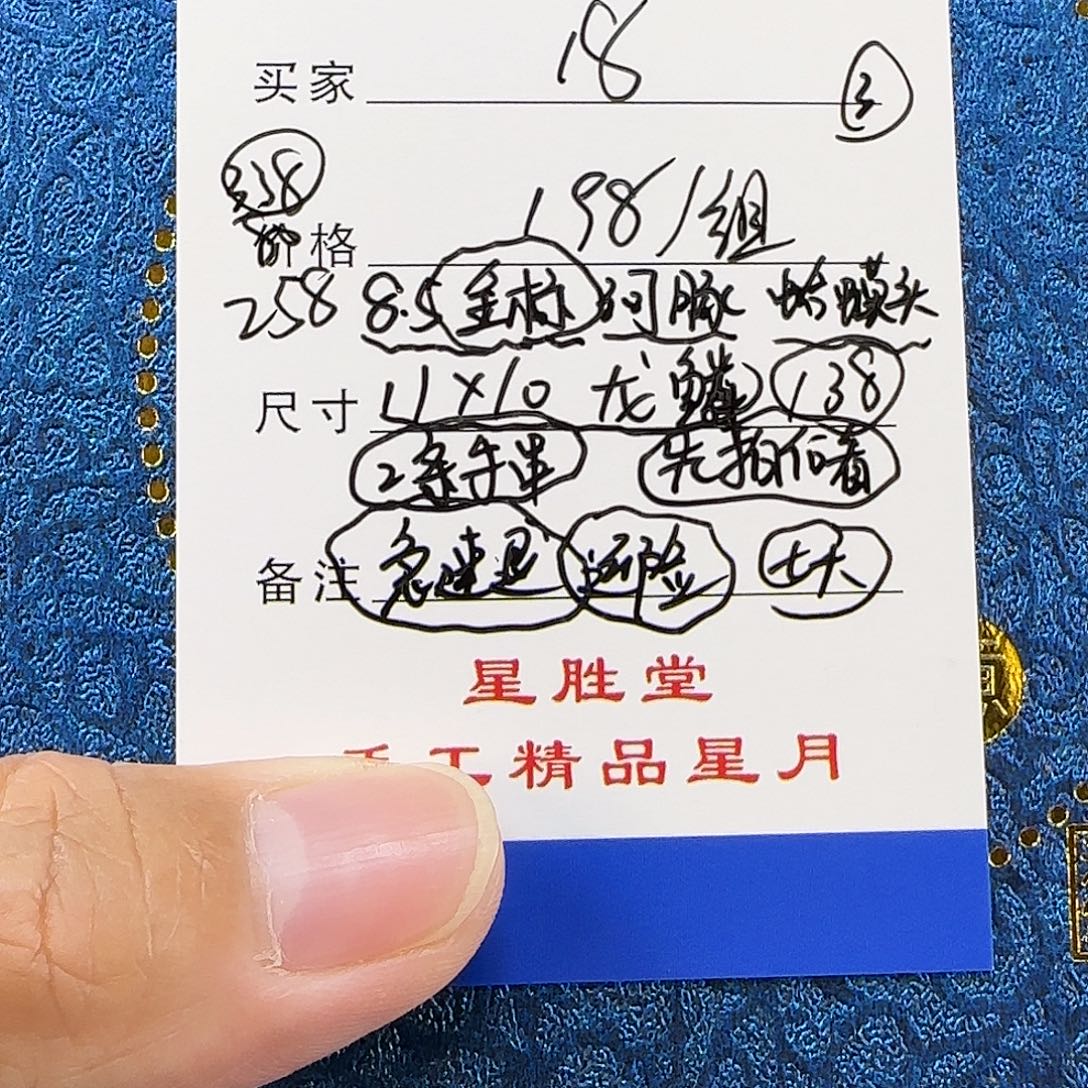 买家 18 3
358
价格 198/组
258 8.5 金标 河豚 馒头
尺寸 11×10 龙鳞 138
2条手串 先拍価看
备注 急速 运险 七天
星胜堂
手工精品星月